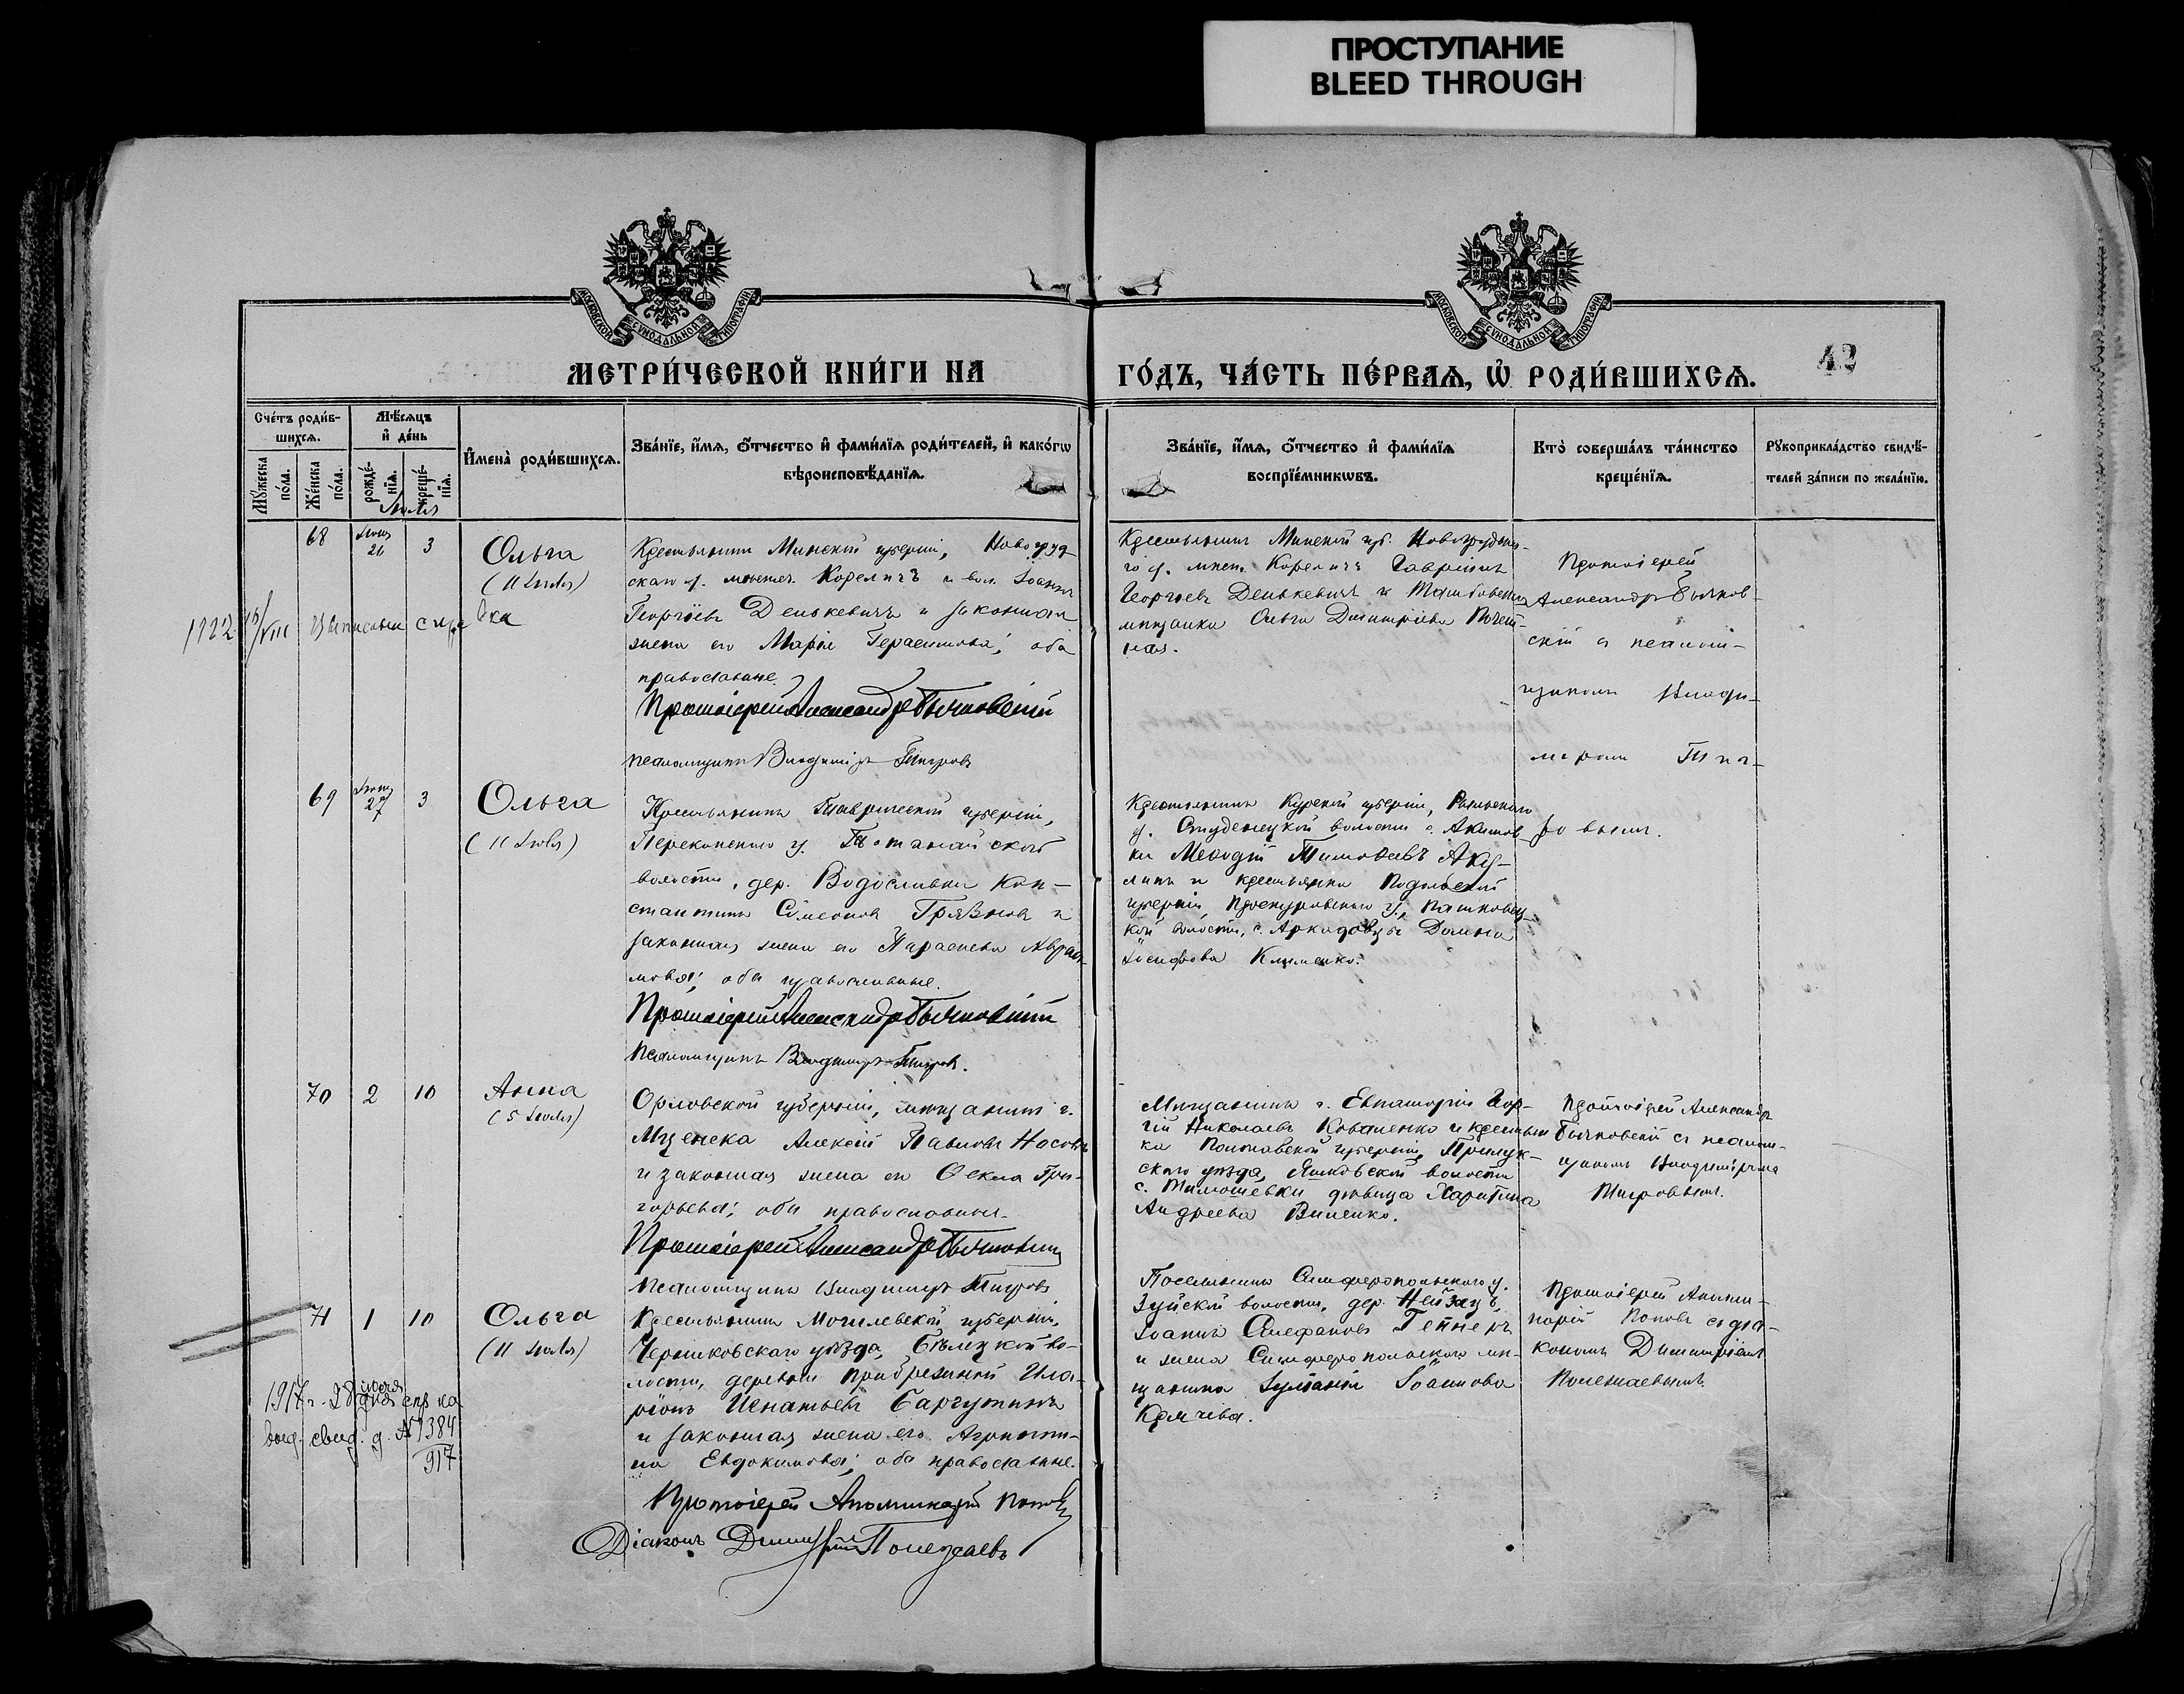 ПРОСТУПАНИЕ
BLEED THROUGH
МОСКОВСКОЙ СѴНОДАЛЬНОЙ ТИПОГРАФІИ
МОСКОВСКОЙ СѴНОДАЛЬНОЙ ТИПОГРАФІИ
МЕТРИ́ЧЕСКОЙ КНИ́ГИ НА
ГО́ДЪ, ЧА́СТЬ ПЕ́РВАѦ, Ѡ҆ РОДИ́ВШИХСѦ.
42
Сче́тъ роди́в-
шихсѧ.
Мꙋ́жеска по́ла.
Же́нска по́ла.
Мѣ́сѧцъ
и҆ де́нь
рожде́-
нїѧ.
креще́-
нїѧ.
И҆мена̀ роди́вшихсѧ.
Зва́нїе, и҆́мѧ, ѻ҆́тчество и҆ фами́лїѧ роди́телей, и҆ како́гѡ
вѣроисповѣ́данїѧ.
Зва́нїе, и҆́мѧ, ѻ҆́тчество и҆ фами́лїѧ
воспрїе́мникѡвъ.
Кто̀ соверша́лъ та́инство
креще́нїѧ.
Рꙋкоприкла́дство свидѣ́-
телей за́писи по жела́нїю.
Іюля
68
Іюня
26
3
Ольга
(11 Іюля)
Крестьянинъ Минской губерніи, Новогруд-
скаго у. мѣстеч. Кореличъ и вол. Іоаннъ
Георгіевъ Денькевичъ и законная
жена его Марія Герасимова; оба
православные.
Протоіерей Александръ Бычковскій
псаломщикъ Владиміръ Тигровъ
Крестьянинъ Минской губ. Новогрудска-
го у. мѣст. Кореличъ Гавріилъ
Георгіевъ Денькевичъ и
мѣщанка Ольга Димитріева
ная.
Протоіерей
Александръ Бычков-
скій съ псалом-
щикомъ Влади-
міромъ Тиг-
ровымъ.
1922
VIII
69
Іюня
27
3
Ольга
(11 Іюля)
Крестьянинъ Таврической губерніи,
Перекопскаго у.
волости, дер. Водославки Кон-
стантинъ Симеоновъ Грязновъ и
законная жена его Параскева Авраа-
мова; оба православные.
Протоіерей Александръ Бычковскій
Псаломщикъ Владиміръ Тигровъ.
Крестьянинъ Курской губерніи, Рыльскаго
у. Студенецкой волости с. Акимов-
ки Меѳодій Тимоѳеевъ Аку-
линъ и крестьянка Подольской
губерніи, Проскуровскаго у., Пашковец-
кой волости, с. Аркадовцы Домна
Іосифова Клименко.
70
2
10
Анна
(5 Іюля)
Орловской губерніи, мѣщанинъ г.
Мценска Алексѣй Павловъ Носовъ
и законная жена его Ѳекла Гри-
горьева; оба православные.
Протоіерей Александръ Бычковскій
Псаломщикъ Владиміръ Тигровъ
Мѣщанинъ г. Евпаторіи Геор-
гій Николаевъ Коваленко и крестьян-
ка Полтавской губерніи, Прилук-
скаго уѣзда, волости
с. Тимошевки дѣвица Харитина
Андреева Виленко.
Протоіерей Александръ
Бычковскій съ псалом-
щикомъ Владиміромъ
Тигровымъ.
71
1
10
Ольга
(11 Іюля)
Крестьянинъ Могилевской губерніи,
Чериковскаго уѣзда, Бѣлицкой во-
лости, деревни Прибрежной Ила-
ріонъ Игнатьевъ Баргутинъ
и законная жена его Агриппи-
на Евдокимова; оба православные.
Протоіерей Аполлинарій Поповъ
Діаконъ Димитрій Полежаевъ
Поселянинъ Симферопольскаго у.
Зуйской волости, дер. Нейзацъ,
Іоаннъ Стефановъ Гейнеръ
и жена Симферопольскаго мѣ-
щанина Іуліанія Іоаннова
Крячева.
Протоіерей Аполли-
нарій Поповъ съ діа-
кономъ Димитріемъ
Полежаевымъ.
1917 г. 28 іюля
выд. свид. д. № 1384
917